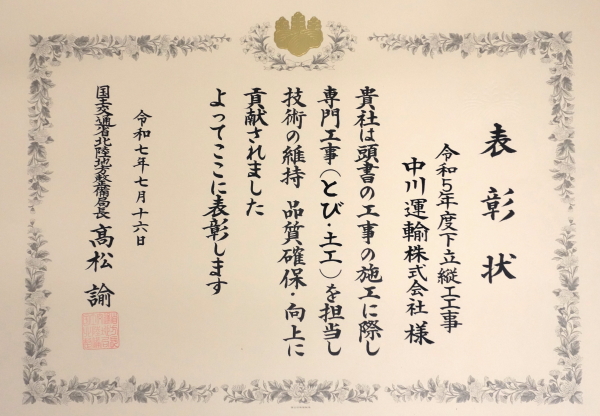 表彰状
令和5年度下立縦工工事
中川運輸株式会社 様
貴社は頭書の工事の施工に際し
専門工事(とび・土工)を担当し
技術の維持 品質確保・向上に
貢献されました
よってここに表彰します
令和七年七月十六日
国土交通省北陸地方整備局長 髙松 諭